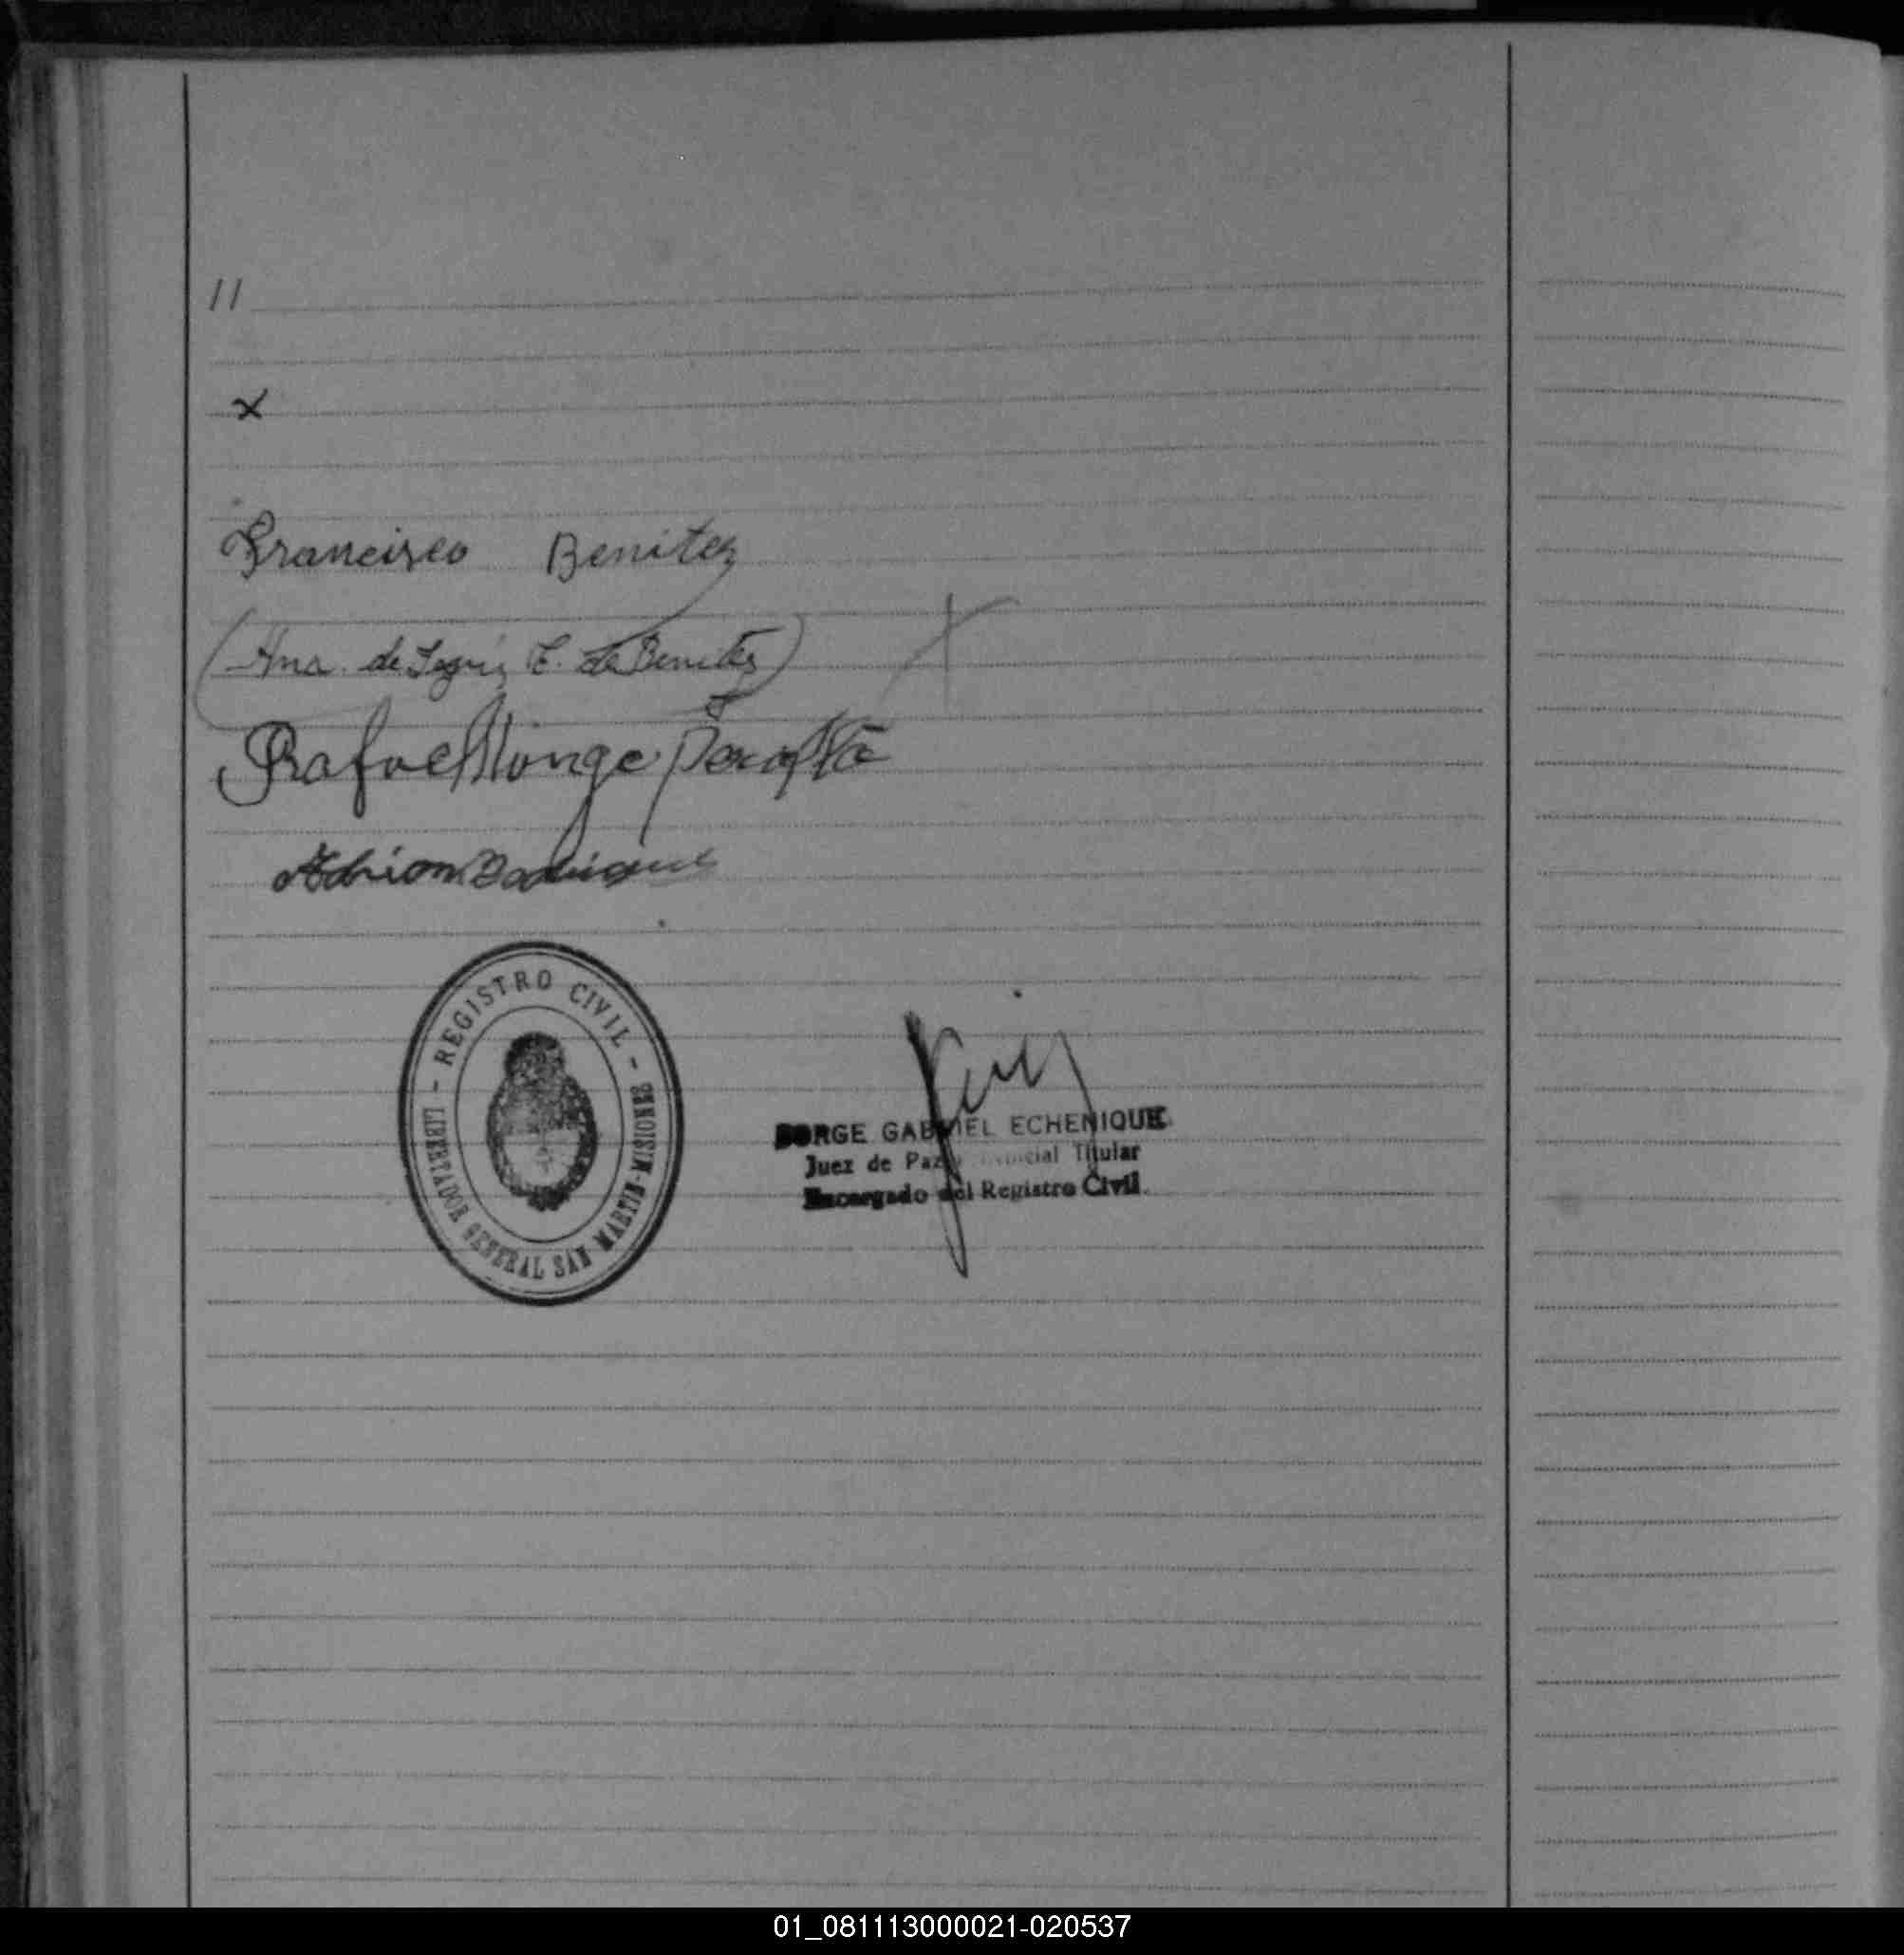 11
x
Francisco Benitez
(Ana. de Jesús E. de Benitez) X
Rafael Monge Peralta
Adrian Rodriguez
- REGISTRO CIVIL -
LIBERTADOR GENERAL SAN MARTIN-MISIONES
JORGE GABRIEL ECHENIQUE
Juez de Paz Titular
Encargado del Registro Civil
01_081113000021-020537